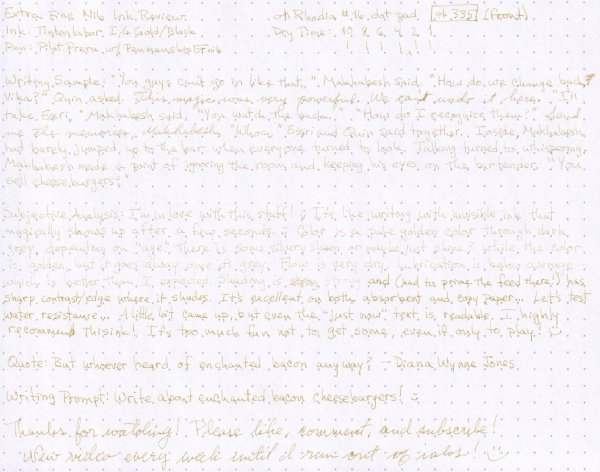 Extra Fine Nib Ink Review on Rhodia #16 dot pad #335 (front)
Ink: Tintenlabor, I.G. Gold/Black Dry Time: 10 8 6 4 2 1
Pen: Pilot Prera, w/ Penmanship EF nib
Writing Sample: "You guys can't go in like that," Makhabesh said. "How do we change back,
Vika?" Quin asked. This magic was very powerful. We can't undo it here. I'll
take, Ezri," Makhabesh said. "You watch the back." "How do I recognize them?" Send
me the memories, Makhabesh. "Whoa," Ezri and Quin said together. Inside, Makhabesh
had barely jumped up to the bar when everyone turned to look. Talking turned to whispering.
Makhabesh made a point of ignoring the room and keeping his eyes on the bartender. "You
sell cheeseburgers?"
Subjective Analysis: I'm in love with this stuff! :) It's like writing with invisible ink that
magically shows up after a few seconds. :) Color is a pale golden color through dark
grey, depending on "age." There is some silvery sheen or maybe just shine? while the color
is golden, but it goes away once it's grey. Flow is very dry, lubrication is below average
which is better than I expected. Shading is strong and (had to prime the feed there!) has
sharp contrast/edge where it shades. It's excellent on both absorbent and copy paper... Let's test
water resistance... A little bit came up, but even the "just now" text is readable. I highly
recommend this ink! It's too much fun not to get some, even if only to play! :)
Quote: But whoever heard of enchanted bacon anyway? - Diana Wynne Jones
Writing Prompt: Write about enchanted bacon cheeseburgers! :)
Thanks for watching! Please like, comment, and subscribe!
New video every week until I run out of inks! :)